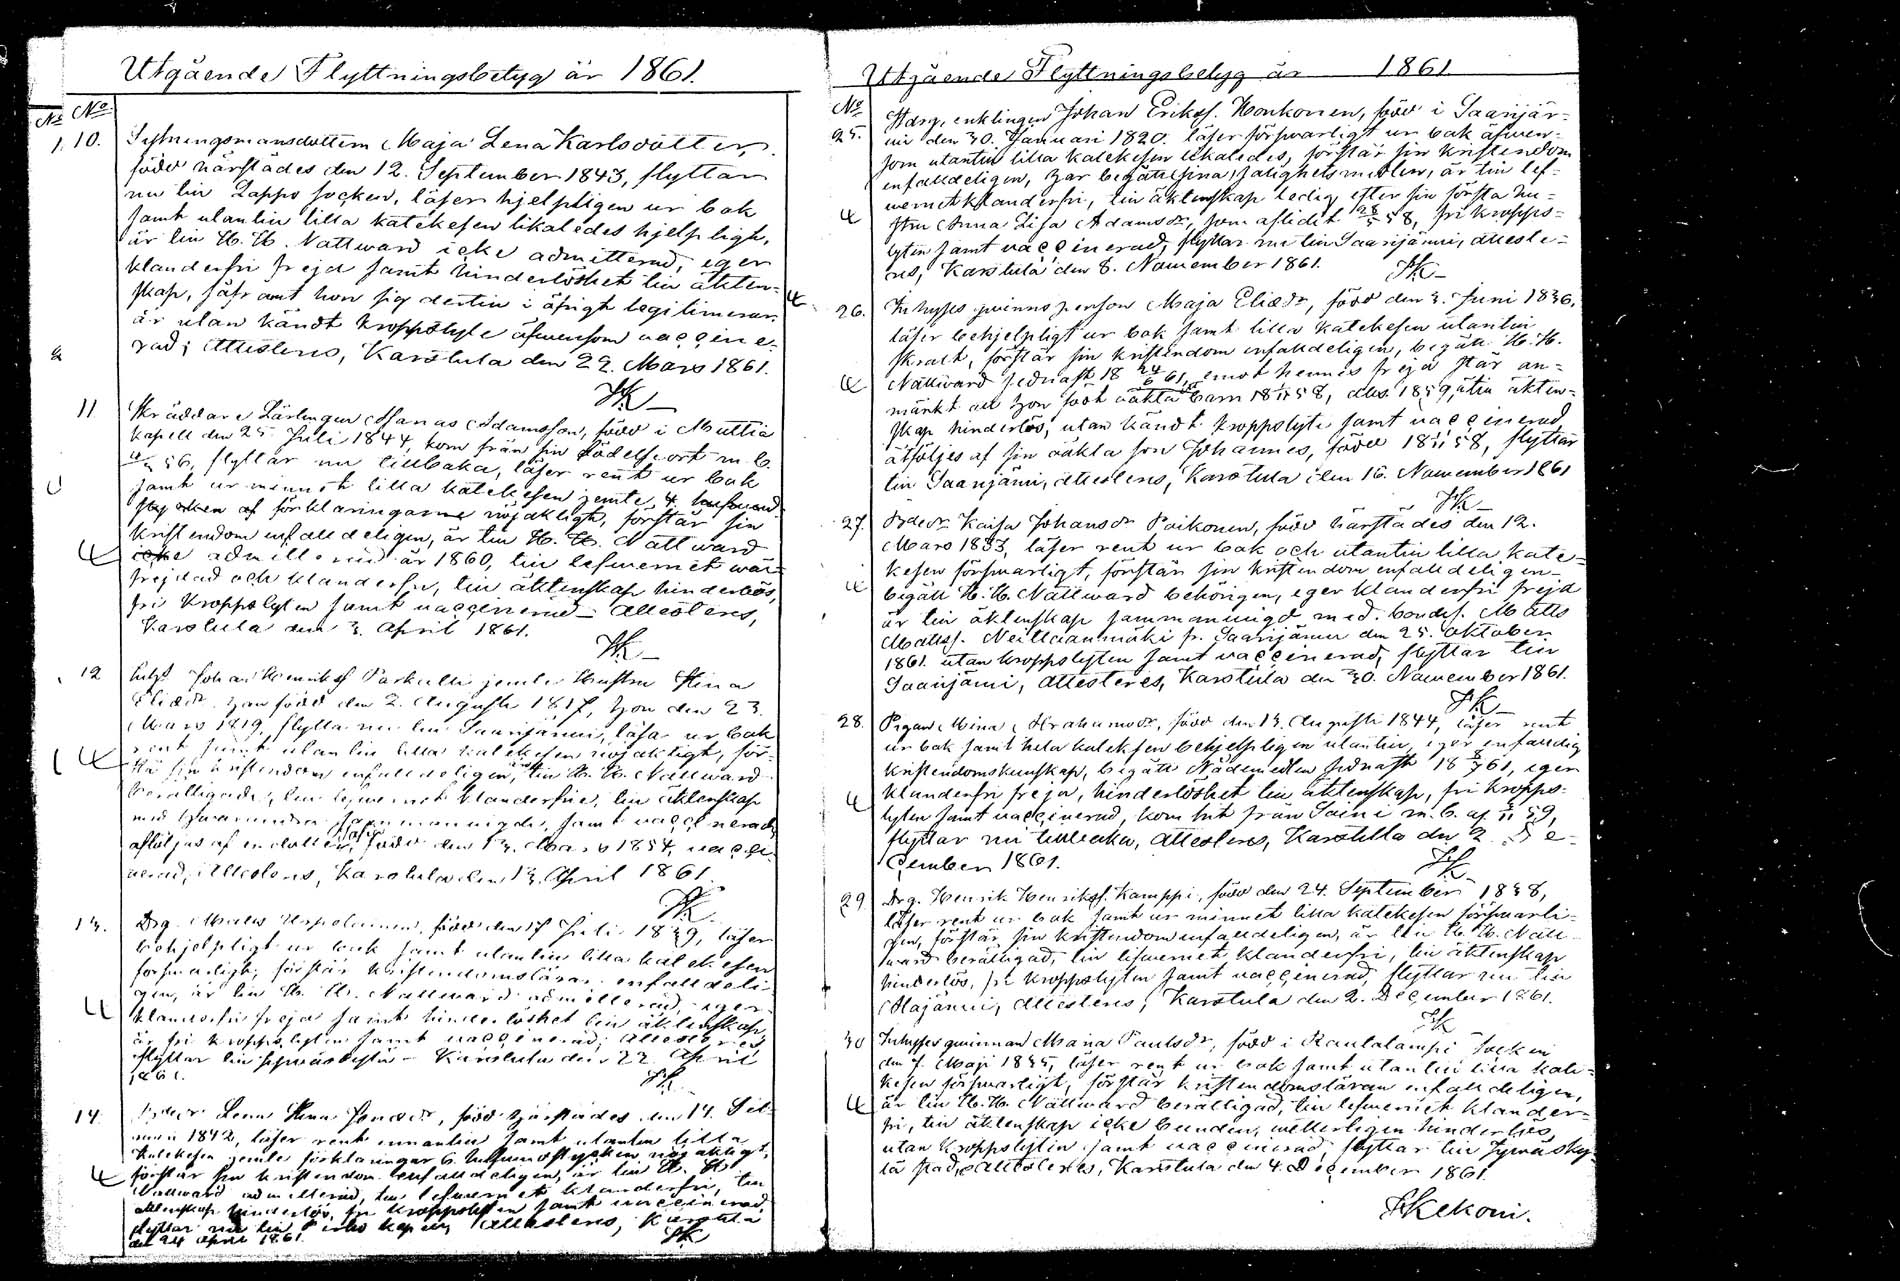 Utgående Flyttningsbetyg år 1861.
No No
1. 10. Sytningsmansdottern Maja Lena Karlsdotter,
född härstädes den 12. September 1843, flyttar
nu till Lappo socken, läser hjelpligen ur bok
samt utantill lilla katekesen likaledes hjelpligt,
är till H. H. Nattward icke admitterad, eger
klanderfri frejd samt hinderlöshet till äkten-
skap, såframt hon sig dertill i öfrigt legitimerar
är utan kändt kroppslyte äfwensom vaccine-
rad; Attesteres, Karstula den 22. Mars 1861.
HK
11 Skräddare Lärlingen Manas Adamsson, född i Multia
kapell den 25 Juli 1844, kom från sin födelseort m. b.
56, flyttar nu tillbaka, läser rent ur bok
samt ur minnet lilla katekesen jemte 4 hufwud-
förklaringarne nöjaktigt, förstår sin
kristendom enfalldeligen, är till H. H. Nattward
admitterad år 1860, till lefwernet wäl-
frejdad och klanderfri, till äktenskap hinderlös,
fri kroppslyten samt vaccinerad - Attesteres,
Karstula den 3. April 1861.
HK
12 Johan Henriksf jemte Hustru Stina
Eliædr. han född den 2. Augusti 1817, hon den 23.
Mars 1819, flytta nu till Saarijärvi, läsa ur bok
rent samt utantill lilla katekesen nöjaktigt, för-
stå sin kristendom enfalldeligen, till H. H. Nattward
berättigade, till lefwernet klanderfrie, till äktenskap
med hwarandra sammanvigde, samt vaccinerade,
åtföljas af en dotter född den 13. Mars 1854, vacci-
nerad, Attesteres, Karstula den 13. April 1861.
HK
13. Drg. Matts född den 17 Juli 1839, läser
behjelpligt ur bok samt utantill lilla katekesen
förswarligt, förstår kristendomsläran enfalldeli-
gen, är till H. H. Nattward admitterad, eger
klanderfri frejd samt hinderlöshet till äktenskap,
är fri kroppslyten samt vaccinerad; Attesteres
flyttar till Jywäskylä - Karstula den 22 April
1861.
HK
14. Lena Stina född härstädes den 14.
1842, läser rent innantill samt utantill lilla
katekesen jemte förklaringar 6. hufwudstycken nöjaktigt,
förstår sin kristendom enfalldeligen, är till H. H.
Nattward admitterad, till lefwernet klanderfri, till
äktenskap hinderlös, fri kroppslyten samt vaccinerad
flyttar nu till Attesteres, Karstula
den 24 April 1861.
HK
Utgående Flyttningsbetyg år 1861
No
25. enklingen Johan Eriksf. Honkonen, född i Saarijär-
vi den 30. Januari 1820. läser förswarligt ur bok äfwen-
som utantill lilla katekesen likaledes, förstår sin kristendom
enfalldeligen, har begått sina salighetsmedlen, är till lef-
wernet klanderfri, till äktenskap ledig efter sin första hu-
stru Anna Lisa Adamsdr, som aflidit 58, fri kropps-
lyten samt vaccinerad, flyttar nu till Saarijärvi, atteste-
res, Karstula den 8. November 1861. HK
26. Inhyses qvinnsperson Maja Eliædr, född den 3. Juni 1836,
läser behjelpligt ur bok samt lilla katekesen utantill
förstår sin kristendom enfalldeligen, begått H. H.
Nattward sednast 18 24/6 61, emot hennes frejd står an-
märkt att hon födt oäkta barn 58, 1859, till äkten-
skap hinderlös, utan kändt kroppslyte samt vaccinerad
åtföljes af sin oäkta son Johannes, född 58, flyttar
till Saarijärvi, attesteres, Karstula den 16. November 1861
HK
27. Kaisa Johansdr Poikonen, född härstädes den 12.
Mars 1833, läser rent ur bok och utantill lilla kate-
kesen förswarligt, förstår sin kristendom enfalldeligen
begått H. H. Nattward behörigen, eger klanderfri frejd
är till äktenskap sammanvigd med bondes. Matts
Mattsf. fr. Saarijärvi den 25. oktober
1861. utan kroppslyten samt vaccinerad, flyttar till
Saarijärvi, attesteres, Karstula den 30. November 1861.
HK
28. Pigan Mina född den 13. Augusti 1844, läser rent
ur bok samt hela katekesen behjelpligen utantill, eger enfalldig
kristendomskunskap, begått Nådemedlen sednast 18 61, eger
klanderfri frejd, hinderlöshet till äktenskap, fri kropps-
lyten samt vaccinerad, kom hit från Soini m. b. af 59,
flyttar nu tillbaka, attesteres, Karstula den 2 De-
cember 1861. HK
29 Drg. Henrik Henriksf. Kamppi, född den 24. September 1838,
läser rent ur bok samt ur minnet lilla katekesen förswarli-
gen, förstår sin kristendom enfalldeligen, är till H. H. Natt-
ward berättigad, till lefwernet klanderfri, till äktenskap
hinderlös, fri kroppslyten samt vaccinerad, flyttar nu till
Alajärvi, attesteres, Karstula den 2. December 1861.
HK
30 Inhyses qvinnan Maria Paulsdr, född i Rautalampi Socken
den 7. Maji 1835, läser rent ur bok samt utantill lilla kate-
kesen förswarligt, förstår kristendomsläran enfalldeligen,
är till H. H. Nattward berättigad, till lefwernet klander-
fri, till äktenskap icke bunden, witterligen hinderlös
utan kroppslyten samt vaccinerad, flyttar till Jywäsky-
lä stad, attesteres, Karstula den 4. December 1861.
HKekoni.